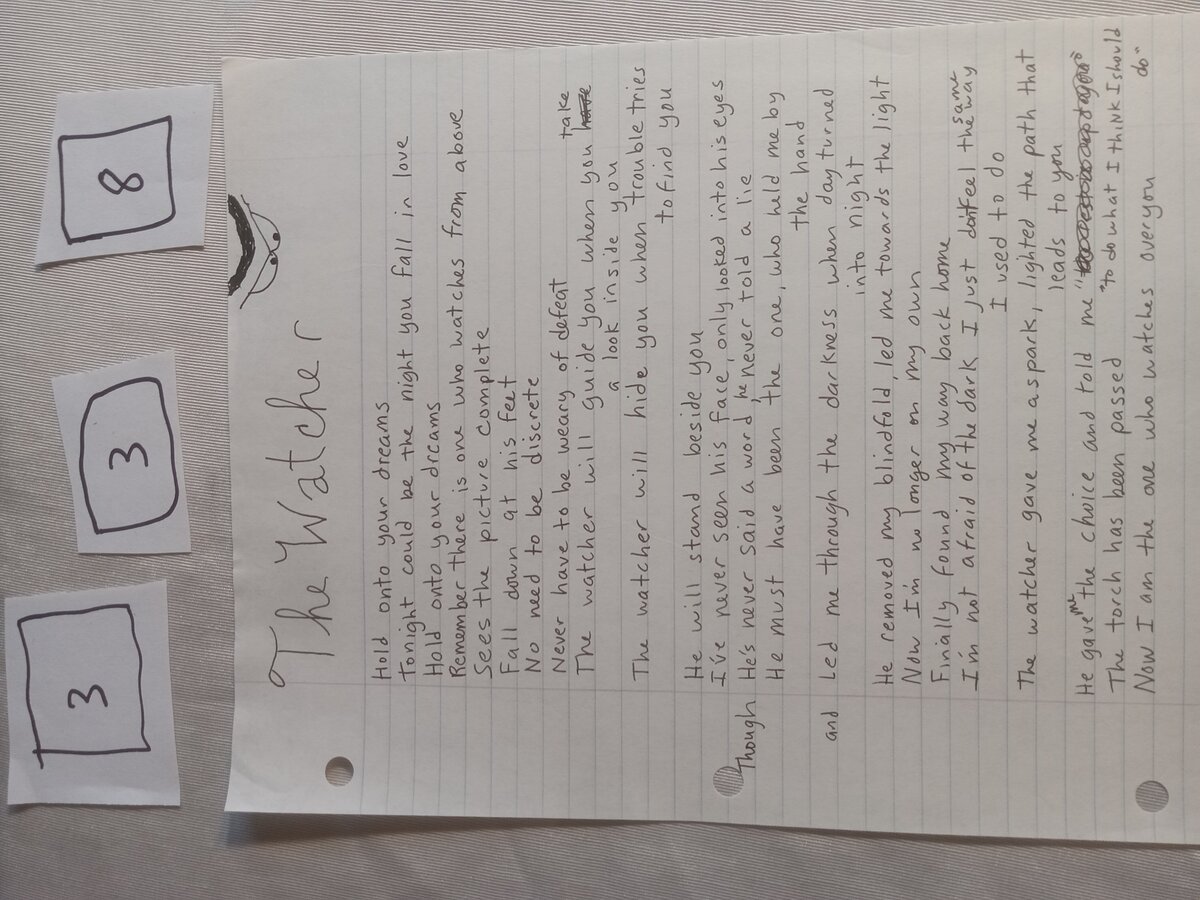 3
3
8
The Watcher
Hold onto your dreams
Tonight could be the night you fall in love
Hold onto your dreams
Remember there is one who watches from above
Sees the picture complete
Fall down at his feet
No need to be discrete
Never have to be weary of defeat
The watcher will guide you when you take
a look inside you
The watcher will hide you when trouble tries
to find you
He will stand beside you
I've never seen his face, only looked into his eyes
Though He's never said a word, he never told a lie
He must have been the one, who held me by
the hand
and Led me through the darkness when day turned
into night
He removed my blindfold, led me towards the light
Now I'm no longer on my own
Finally found my way back home
I'm not afraid of the dark I just don't feel the same way
I used to do
The watcher gave me a spark, lighted the path that
leads to you
He gave me the choice and told me "
"to do what I think I should do"
The torch has been passed
Now I am the one who watches over you